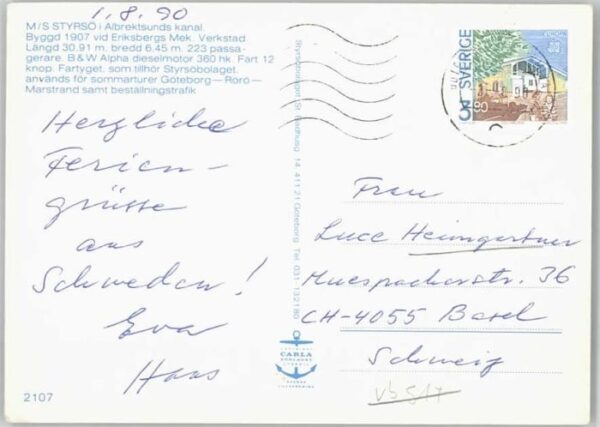 1.8.90
M/S STYRSÖ i Albrektsunds kanal.
Byggd 1907 vid Eriksbergs Mek. Verkstad.
Längd 30,91 m. bredd 6,45 m. 223 passa-
gerare. B & W Alpha dieselmotor 360 hk. Fart 12
knop. Fartyget, som tillhör Styrsöbolaget
används för sommarturer Göteborg—Rörö—
Marstrand samt beställningstrafik
Herzliche
Ferien-
grüsse
aus
Schweden!
Eva
Haas
2107
14, 411 21 Göteborg Tel 031-132180
CARLA
SVERIGE
Frau
Luce Heimgartner
Muespacherstr. 36
CH-4055 Basel
Schweiz